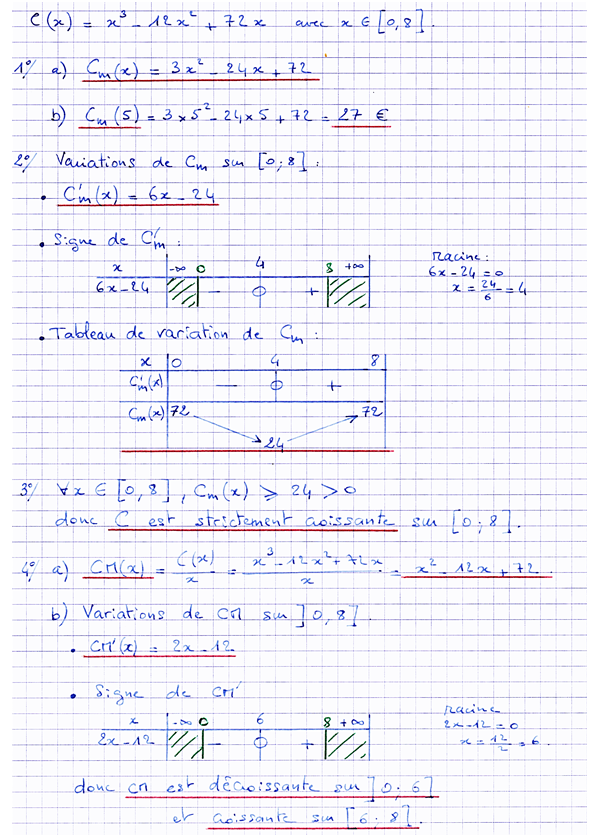 C(x) = x³ - 12x² + 72x avec x ∈ [0,8].
1°/ a) Cm(x) = 3x² - 24x + 72
b) Cm(5) = 3 × 5² - 24 × 5 + 72 = 27 €
2°/ Variations de Cm sur [0;8] :
• C'm(x) = 6x - 24
• Signe de C'm :
x -∞ 0 4 8 +∞
6x - 24 - 0 +
Racine :
6x - 24 = 0
x = 24/6 = 4
• Tableau de variation de Cm :
x 0 4 8
C'm(x) - 0 +
Cm(x) 72 24 72
3°/ ∀x ∈ [0,8], Cm(x) ⩾ 24 > 0
donc C est strictement croissante sur [0;8].
4°/ a) CM(x) = C(x)/x = (x³ - 12x² + 72x)/x = x² - 12x + 72.
b) Variations de CM sur ]0,8].
• CM'(x) = 2x - 12
• Signe de CM'
x -∞ 0 6 8 +∞
2x - 12 - 0 +
racine
2x - 12 = 0
x = 12/2 = 6.
donc CM est décroissante sur ]0;6]
et croissante sur [6;8].